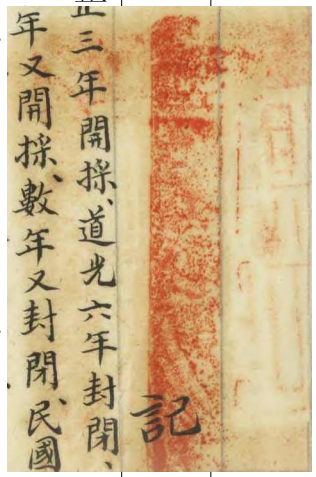 記
正三年開採、道光六年封閉、
年又開採、數年又封閉、民國